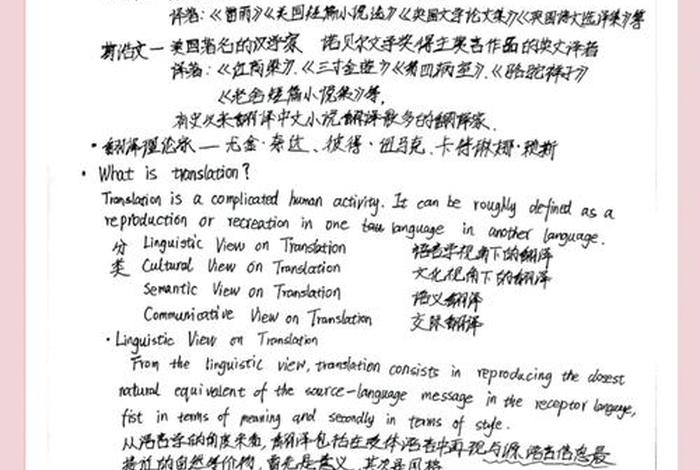 译著:《雷雨》《美国短篇小说选》《英国文学论文集》《英国语文选译集》等
葛浩文一美国著名的汉学家 诺贝尔文学奖得主莫言作品的英文译者
译著:《红高粱》.《三寸金莲》《第四病室》.《骆驼祥子》
《老舍短篇小说集》等,
有史以来翻译中文小说翻译最多的翻译家.
·翻译理论家 — 尤金·奈达、彼得·纽马克、卡特琳娜·赖斯
· What is translation?
Translation is a complicated human activity. It can be roughly defined as a
reproduction or recreation in one language in another language.
分 Linguistic View on Translation 语言学视角下的翻译
类 Cultural View on Translation 文化视角下的翻译
Semantic View on Translation 语义翻译
Communicative View on Translation 交际翻译
· Linguistic View on Translation
From the linguistic view, translation consists in reproducing the closest
natural equivalent of the source-language message in the receptor language,
fist in terms of meaning and secondly in terms of style.
从语言学的角度来看,翻译包括在受体语言中再现与源语言信息最
接近的自然等价物,首先是意义,其次是风格